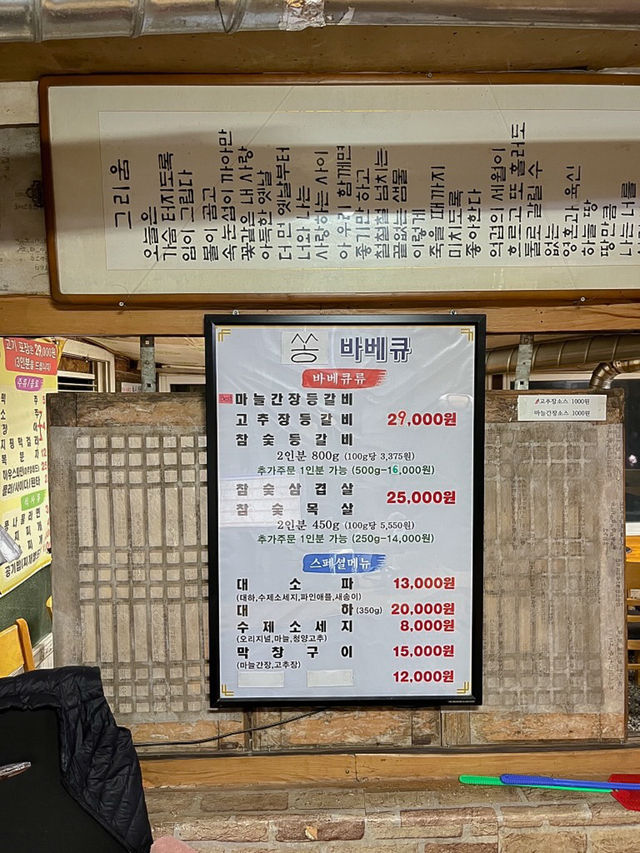 그리움
오늘은
가슴 터지도록
임이 그립다
볼이 곱고
속눈썹이 까아만
꽃잎의 내 사랑
아득한 옛날
더 먼 옛날부터
너와 나는
사랑하는 사이
아 우리 함께면
좋기만 하고
철철철 넘치는
끝없는 샘물
이렇게
죽을 때까지
미치도록
좋아한다
억겁의 세월이
흐르고 또 흘러도
물로 갈릴 수
없는
영혼과 육신
하늘 땅
땅만큼
나는 너를
고기 포장은 29,000원
(3인분을 드립니다)
주류/음료
쏭 바베큐
바베큐류
마늘간장등갈비
고추장등갈비 29,000원
참숯등갈비
2인분 800g (100g당 3,375원)
추가주문 1인분 가능 (500g-16,000원)
참숯삼겹살
참숯목살 25,000원
2인분 450g (100g당 5,550원)
추가주문 1인분 가능 (250g-14,000원)
스페셜메뉴
대소파 13,000원
(대하,수제소세지,파인애플,새송이)
대하(350g) 20,000원
수제소세지 8,000원
(오리지널,마늘,청양고추)
막창구이 15,000원
(마늘간장,고추장)
12,000원
고추장소스 1000원
마늘간장소스 1000원